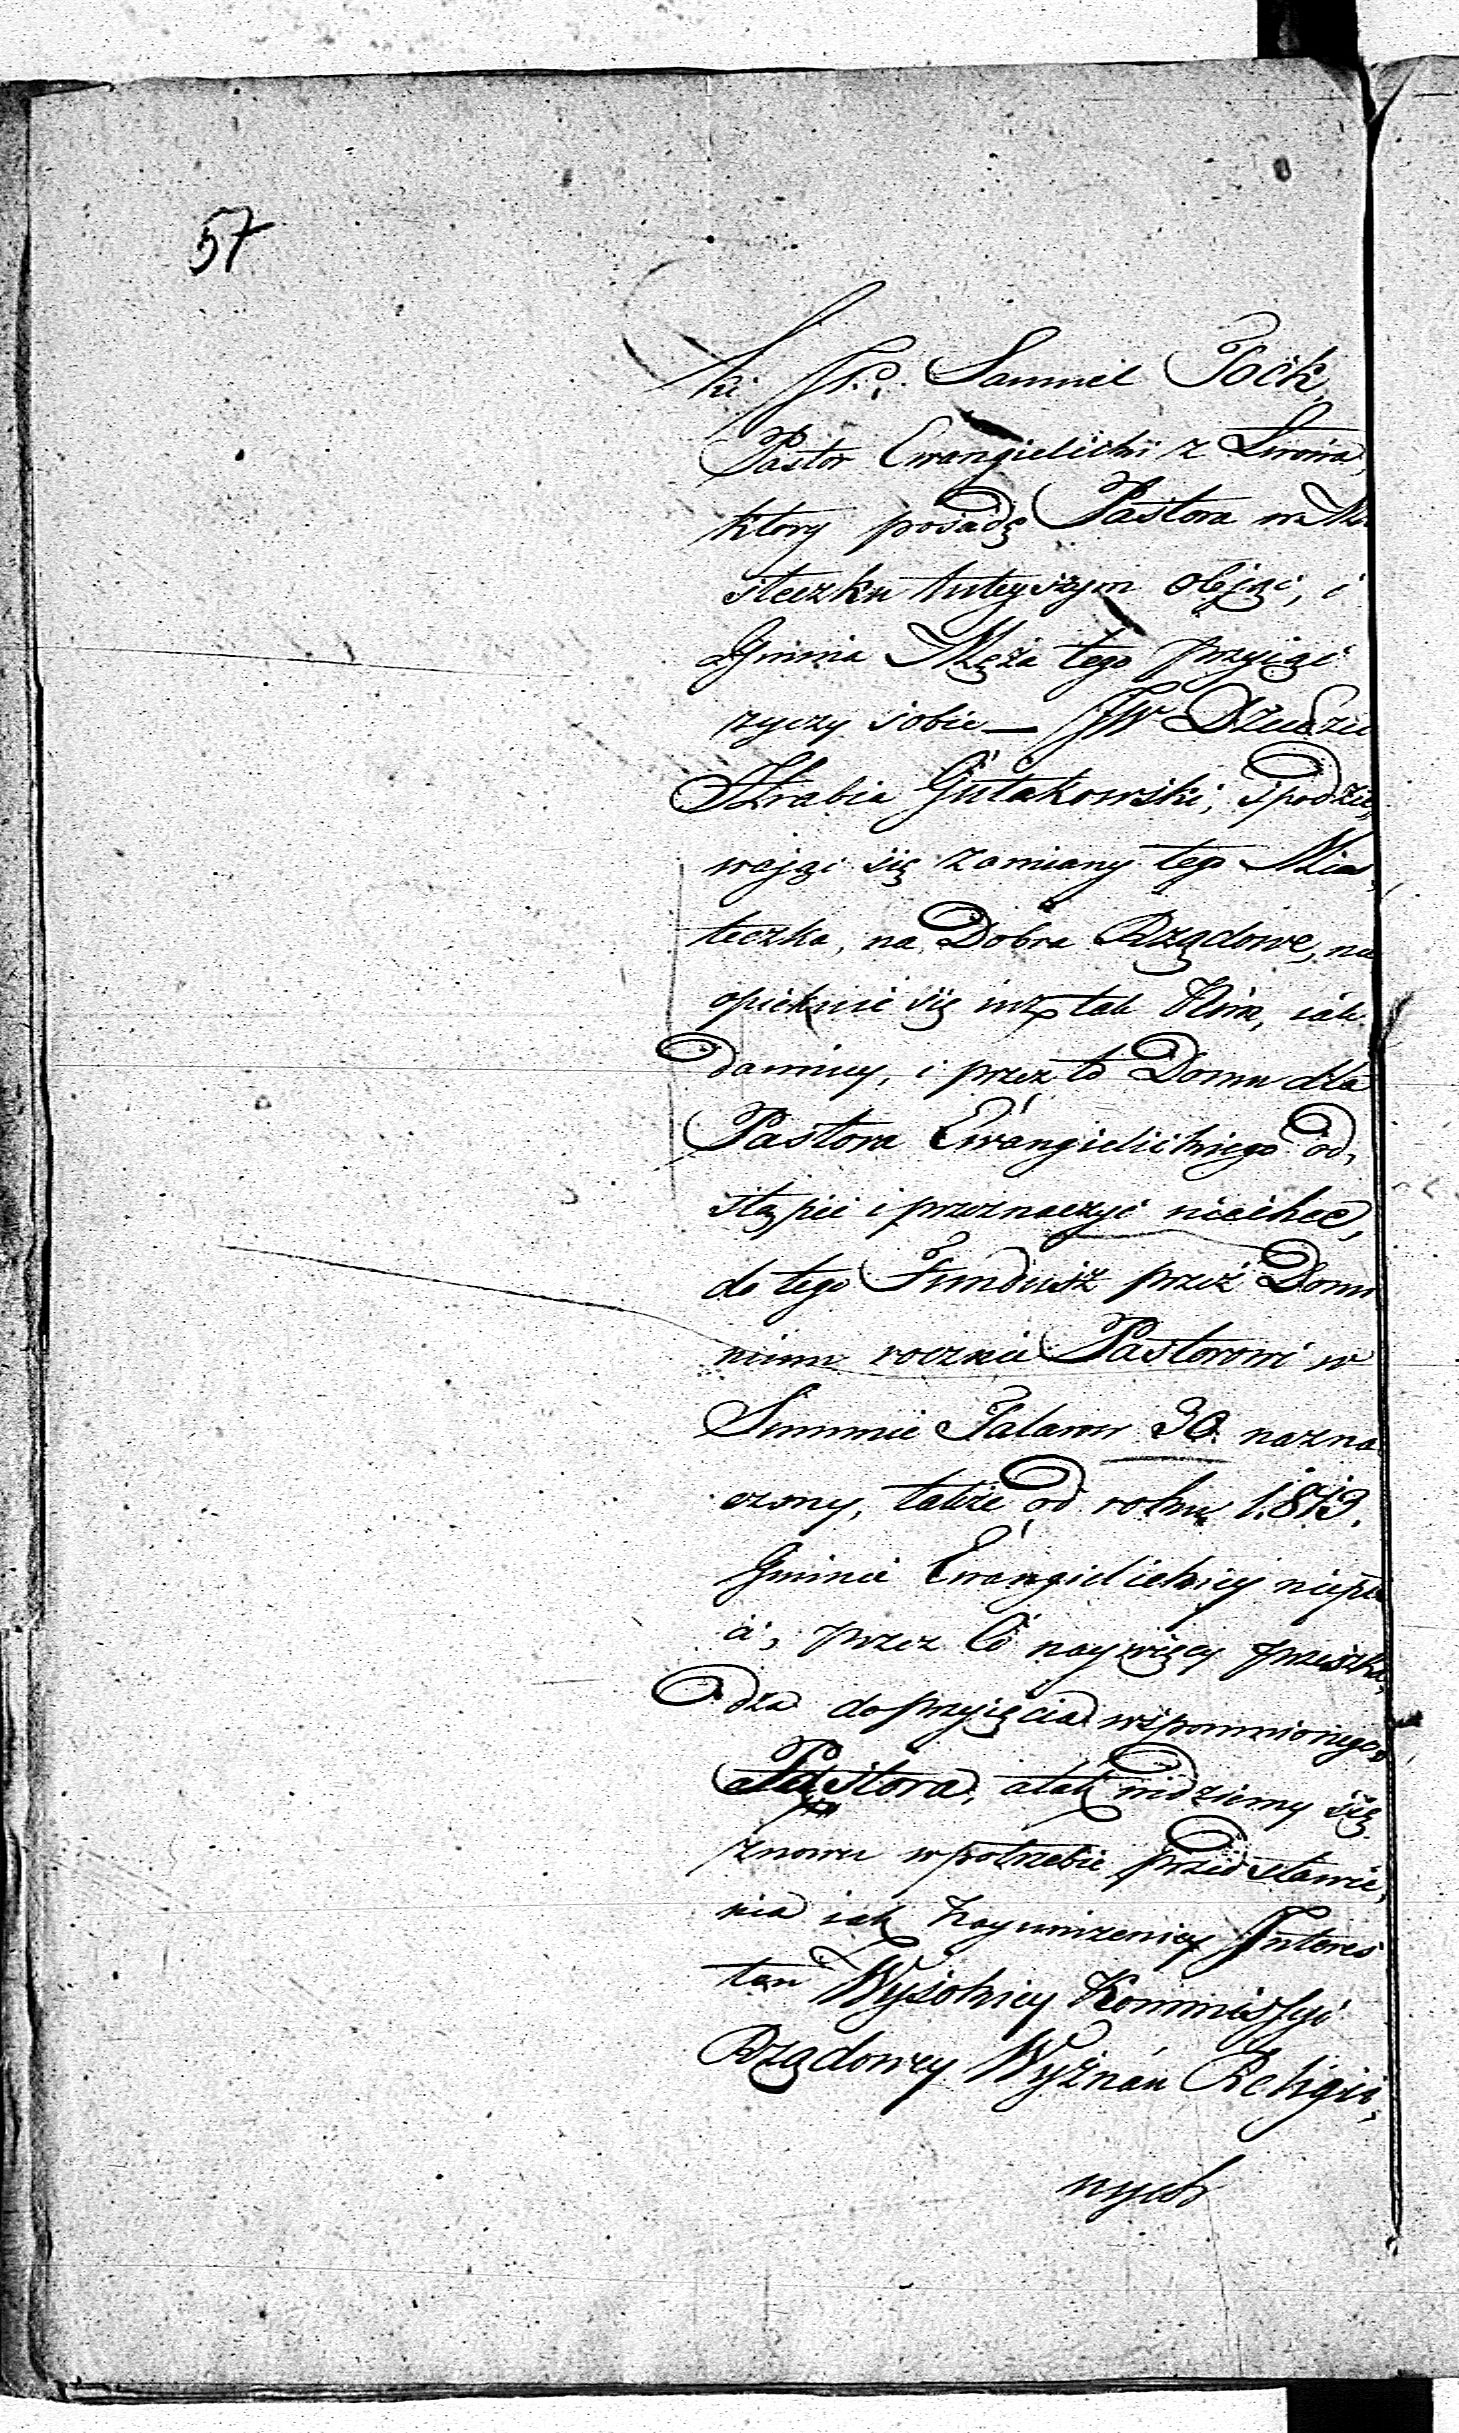 57
ki JP. Samuel Tock,
Pastor Ewangielicki z Lwowa,
ktory posadę Pastora w Mia
steczku tuteyszym objąć, i
Gmina Męża tego przyiąć
zyczy sobie — JW Dziedzic
Hrabia Gutakowski, spodzie,
wając się zamiany tego Mias,
teczka, na Dobra Rządowe, nie
opiekuie się iuz tak Nim, iak
dawniey, i przez to Domu dla
Pastora Ewangielickiego od,
stąpić i przeznaczyć niechce,
do tego Fundusz przez Domi
nium rocznie Pastorowi w
Summie Talarow 30. nazna
czony, także od roku 1819.
Gminie Ewangielickiey niepła
ci, przez Co naywięcy przeszka,
dza do przyięcia wspomnionego
Pastora, a tak widziemy się
znowu w potrzebie przedstawie,
nia iak nayuniżeniey Interes
ten Wysokiey Kommissyi
Rządowey Wyznań Religii,
nych